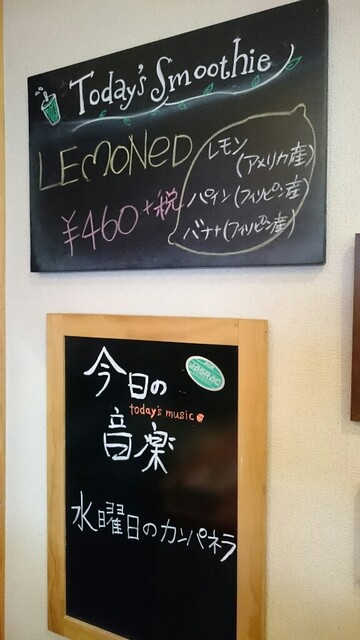 Today's Smoothie
LEMONED
¥460+税
レモン
(アメリカ産)
パイン(フィリピン産)
バナナ(フィリピン産)
今日の
today's music
音楽
水曜日のカンパネラ